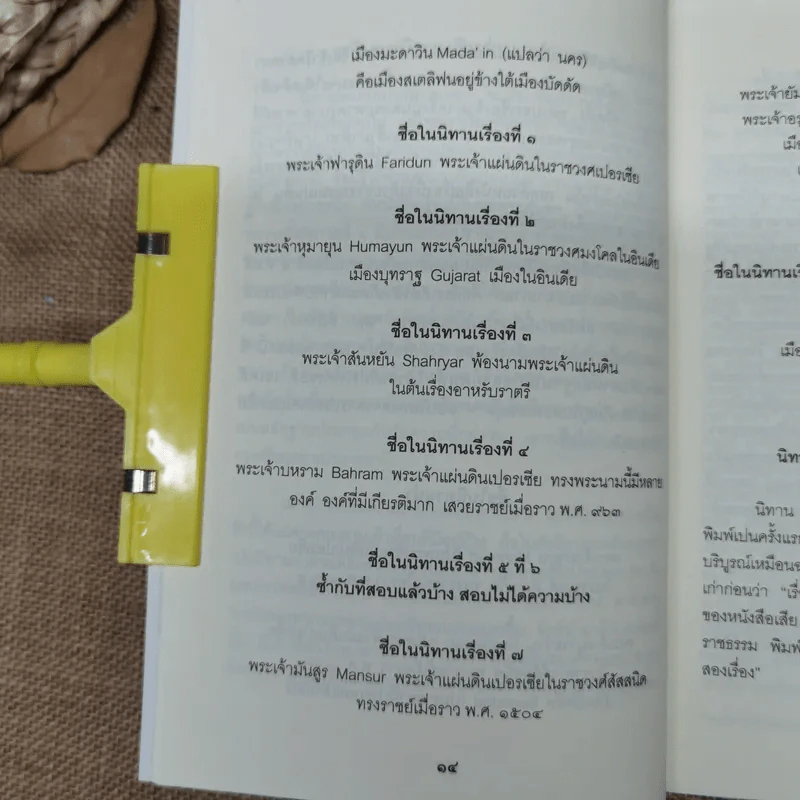 เมืองมะดาวิน Mada'in (แปลว่า นคร)
คือเมืองสเตลิฟนอยู่ข้างใต้เมืองบัดดัด
ชื่อในนิทานเรื่องที่ ๑
พระเจ้าฟารุดิน Faridun พระเจ้าแผ่นดินในราชวงศเปอรเซีย
ชื่อในนิทานเรื่องที่ ๒
พระเจ้าหุมายุน Humayun พระเจ้าแผ่นดินในราชวงศมงโคลในอินเดีย
เมืองบุทราฐ Gujarat เมืองในอินเดีย
ชื่อในนิทานเรื่องที่ ๓
พระเจ้าสันหยัน Shahryar พ้องนามพระเจ้าแผ่นดิน
ในต้นเรื่องอาหรับราตรี
ชื่อในนิทานเรื่องที่ ๔
พระเจ้าบหราม Bahram พระเจ้าแผ่นดินเปอรเซีย ทรงพระนามนี้มีหลาย
องค์ องค์ที่มีเกียรติมาก เสวยราชย์เมื่อราว พ.ศ. ๙๖๓
ชื่อในนิทานเรื่องที่ ๕ ที่ ๖
ซ้ำกับที่สอบแล้วบ้าง สอบไม่ได้ความบ้าง
ชื่อในนิทานเรื่องที่ ๗
พระเจ้ามันสูร Mansur พระเจ้าแผ่นดินเปอรเซียในราชวงศ์สัสสนิด
ทรงราชย์เมื่อราว พ.ศ. ๑๕๐๔
๑๔
พระเจ้ายัม
พระเจ้าอร
เมือ
ชื่อในนิทานเรื
เมือ
นิทา
นิทาน
พิมพ์เปนครั้งแร
บริบูรณ์เหมือนฉ
เก่าก่อนว่า "เรื่
ของหนังสือเสีย
ราชธรรม พิมพ์
สองเรื่อง"